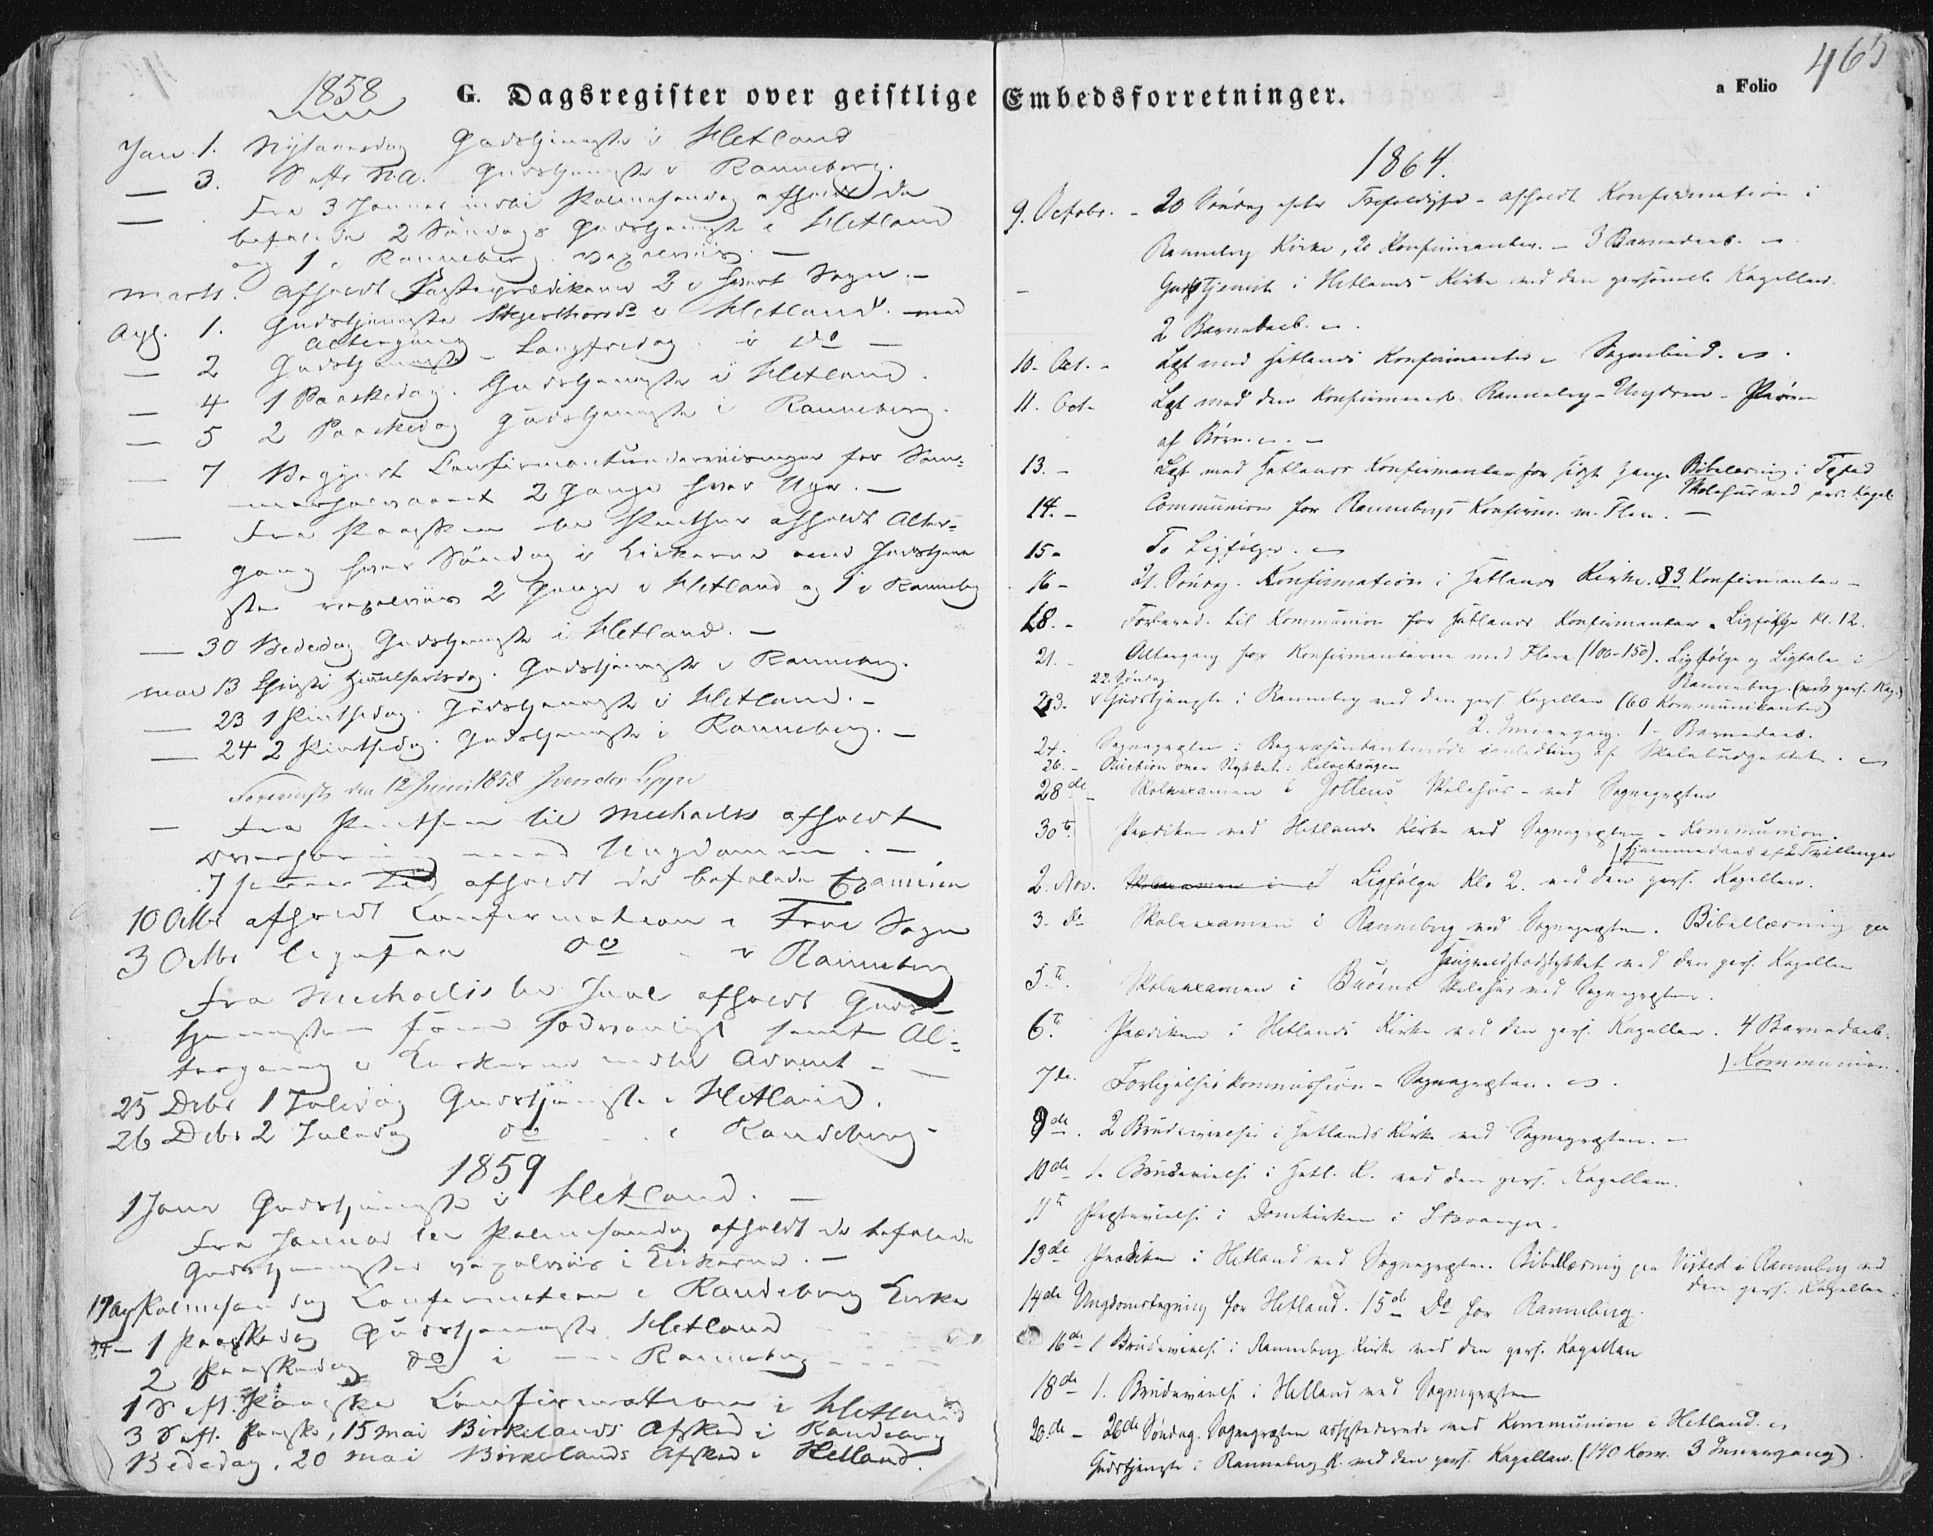 465
G. Dagsregister over geistlige Embedsforretninger.
a Folio
1858
Jan. 1. Nytaarsdag Gudstjeneste i Hetland
— 3. S. eft. N.A. Gudstjeneste i Ranneberg.
— Fra 3 Januar indtil Palmesøndag afholdt de
befalede 2 Søndags Gudstjeneste i Hetland
og 1 i Ranneberg vexelviis. —
Marts. Afholdt Fasteprædikener 2 i hvert Sogn. —
Apl. 1. Gudstjeneste Skjærthorsd. i Hetland. med
Altergang
— 2 Gudstjeneste - Langfredag i do —
— 4 1 Paaskedag. Gudstjeneste i Hetland.
— 5 2 Paaskedag Gudstjeneste i Ranneberg.
— 7 Begyndt Confirmantunderviisningen for Som-
merhalvaaret 2 Gange hver Uge. —
— Fra Paasken til Pintse afholdt Alter-
gang hver Søndag i Kirkerne med Gudstjene
sten vexelviis 2 Gange i Hetland og 1 i Ranneberg
— 30 Bededag Gudstjeneste i Hetland. —
Mai 13 Christi Himmelfartsdag. Gudstjeneste i Ranneberg.
— 23 1 Pintsedag. Gudstjeneste i Hetland. —
— 24 2 Pintsedag. Gudstjeneste i Ranneberg. —
Foreviist den 12 Juni 1858 Jvonder Lippe
— Fra Pintsen til Michaelis afholdt
Overhøring med Ungdommen. —
afholdt de befalede Examina
10 Octbr afholdt Confirmation i Frue Sogn
3 Octbr ligesaa do i Ranneberg
Fra Michaelis til Juul afholdt Guds-
tjenesten som sædvanligt samt Al-
tergang i Kirkerne indtil Advent —
25 Debr 1 Juledag Gudstjeneste i Hetland.
26 Debr 2 Juledag do i Randeberg
1859
1 Janr Gudstjeneste i Hetland. —
Fra Januar til Palmesøndag afholdt de befalede
Gudstjenester vexelviis i Kirkerne. —
17 Ap Palmesøndag Confirmation i Randeberg Kirke
24 — 1 Paaskedag Gudstjeneste Hetland
2 Paaskedag do i — Ranneberg
1 S. eft. Paaske Confirmation i Hetland
3 S. eft. Paaske, 15 Mai Birkelands Afsked i Randeberg
Bededag, 20 Mai Birkelands Afsked i Hetland.
1864.
9. Octobr. - 20 Søndag efter Trefoldighed - afholdt Konfirmation i
Ranneberg Kirke, 20 Konfirmanter. — 3 Barnedaab. —
— Gudstjeneste i Hetlands Kirke ved den personelle Kapellan.
2 Barnedaab. —
10. Oct. - Læst med Hetlands Konfirmanter - Sognebud.
11. Oct. Læst med den konfirmerede Ranneberg-Ungdom - Prøven
af Børn. —
13. - Læst med Hetlands Konfirmanter for sidste Gang. Bibellæsning i Tasted
Skolehus ved pers. Kapel.
14. - Communion for Rannebergs Konfirm. m. Flere. —
15 - To Ligfølger.
16 - 21. Søndag. Konfirmation i Hetlands Kirke. 83 Konfirmanter —
18. - Forbered. til Kommunion for Hetlands Konfirmanter. Ligfølge Kl. 12.
21. - Altergang for Konfirmanterne med Flere (100-150). Ligfølge og Ligtale i
Ranneberg. (ved pers. Kap.)
22. Søndag
23. Gudstjeneste i Ranneberg ved den pers. Kapellan (60 Kommunikanter)
2. Innergang. 1. Barnedaab.
24. Sognepræsten i Repræsentantmøde i anledning af Skolebudgettet.
26. - Auction over
28de Skoleexamen i Jottens Skolehus - ved Sognepræsten
30te. Prædiken ved Hetlands Kirke ved Sognepræsten - Kommunion.
Hjemmedaab af 2 Tvillinger
2. Nov. Ligfølge Kl. 2. ved den pers. Kapellan.
3. de Skoleexamen i Ranneberg ved Sognepræsten. Bibellæsning paa
ved den pers. Kapellan
5.te. Skoleexamen i Buøens Skolehus ved Sognepræsten.
6te. Prædiken i Hetlands Kirke ved den pers. Kapellan. 4 Barnedaab.
Kommunion.
7de. Forligelseskommission - Sognepræsten.
9de. 2 Brudevielser i Hetlands Kirke ved Sognepræsten. —
10de 1. Brudevielse i Hetl. K. ved den pers. Kapellan.
11te Præstevielse i Domkirken i Stavanger.
13de Prædiken i Hetland ved Sognepræsten. Bibellæsning paa Visted i Ranneberg ved
den pers. Kapellan.
14de Ungdomslæsning for Hetland. 15de Do for Ranneberg.
16de 1 Brudevielse i Ranneberg Kirke ved den pers. Kapellan
18de 1. Brudevielse i Hetland ved Sognepræsten
20.de - 26de Søndag. Sognepræsten ved Kommunion i Hetland.
Gudstjeneste i Ranneberg K. ved den pers. Kapellan. (140 Kom. 3 Innergang).